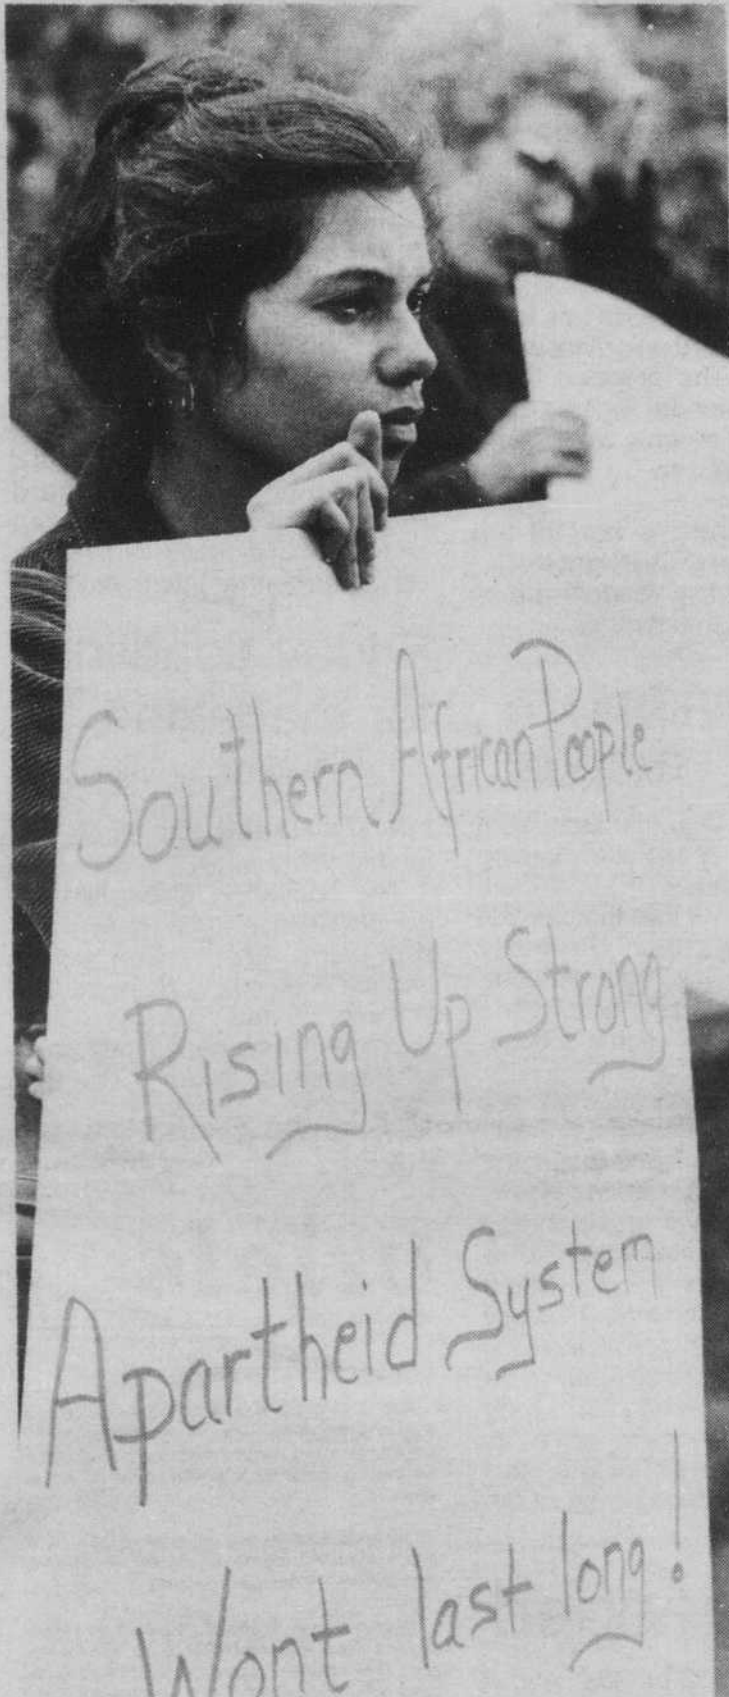 Southern African People
Rising Up Strong
Apartheid System
Wont last long!